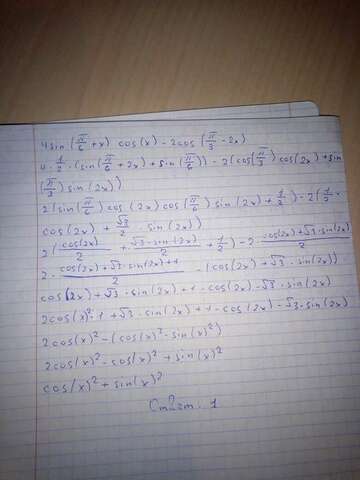 4sin(π/6+x) cos(x) - 2cos(π/3-2x)
4·1/2·(sin(π/6+2x)+sin(π/6)) - 2(cos(π/3)cos(2x)+sin
(π/3)sin(2x))
2(sin(π/6)cos(2x)cos(π/6)sin(2x)+1/2)-2(1/2·
cos(2x)+√3/2·sin(2x))
2(cos(2x)/2+√3·sin(2x)/2+1/2)-2·cos(2x)+√3·sin(2x)/2
2·cos(2x)+√3·sin(2x)+1/2-(cos(2x)+√3·sin(2x))
cos(2x)+√3·sin(2x)+1-cos(2x)-√3·sin(2x)
2cos(x)²-1+√3·sin(2x)+1-cos(2x)-√3·sin(2x)
2cos(x)²-(cos(x)²-sin(x)²)
2cos(x)²-cos(x)²+sin(x)²
cos(x)²+sin(x)²
Ответ. 1